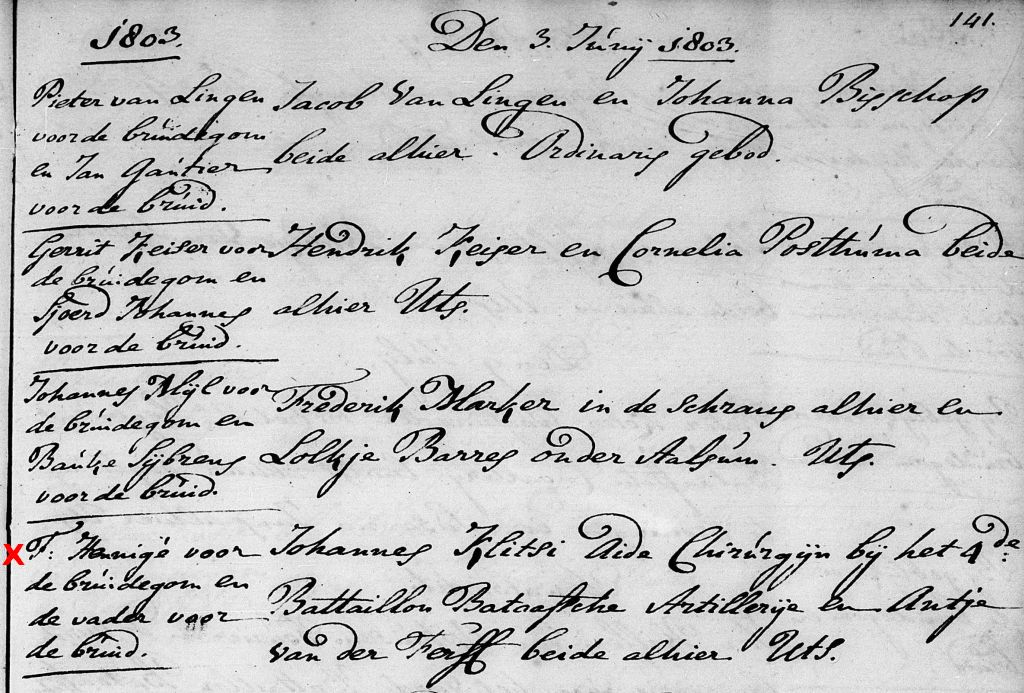 141.
1803.
Den 3. Júnij 1803.
Pieter van Lingen
voor de brúidegom
en Jan Gautier
voor de brúid.
Jacob van Lingen en Johanna Bisschop
beide alhier. Ordinaris gebod.
Gerrit Keiser voor
de brúidegom en
Sjoerd Johannes
voor de brúid.
Hendrik Keiser en Cornelia Posthúma beide
alhier Uts.
Johannes Mijl voor
de brúidegom en
Baúke Sijbrens
voor de brúid.
Frederik Marker in de Schrans alhier en
Lolkje Barres onder Aalsúm. Uts.
X
F: Hennigé voor
de brúidegom en
de vader voor
de brúid.
Johannes Klitsi Aide Chirúrgijn bij het 4de:
Battaillon Bataafsche Artillerije en Antje
van der Ferff beide alhier Uts.